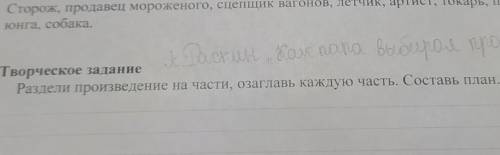 Сторож, продавец мороженого, сцепщик вагонов, летчик, артист, токарь,
юнга, собака.
А. Раскин „Как папа выбирал
Творческое задание
Раздели произведение на части, озаглавь каждую часть. Составь план.